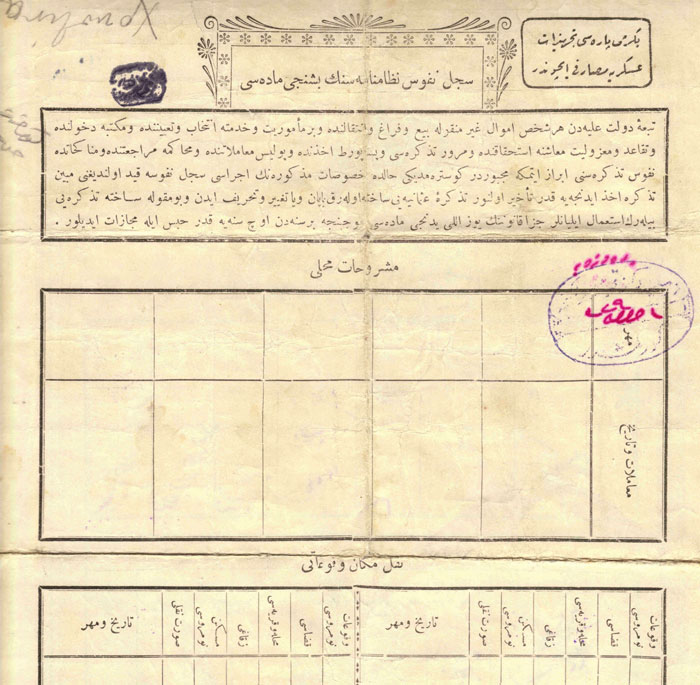 یكرمی پاره سی تجهیزات
عسكریه مصارفی ایچوندر
سجل نفوس نظامنامه سنك بشنجی ماده سی
تبعهٔ دولت علیه دن هر شخص اموال غیر منقوله بیع و فراغ و انتقالنده و بر مأموریت و خدمته انتخاب و تعییننده و مكتبه دخولنده
و تقاعد و معزولیت معاشنه استحقاقنده و مرور تذكره سی و پساپورط اخذنده و پولیس معاملاتنده و محاكمه مراجعتنده و مناكحاتده
نفوس تذكره سنی ابراز ایتمكه مجبوردر كوسترمدیكی حالده خصوصات مذكوره نك اجراسی سجل نفوسه قید اولندیغنی مبین
تذكره اخذ ایدنجیه قدر تأخیر اولنور تذكرهٔ عثمانیه یی ساخته اوله رق یاپان و یا تغییر و تحریف ایدن و بو مقوله ساخته تذكره یی
بیله رك استعمال ایلیانلر جزا قانوننك یوز اللی یدنجی ماده سی موجبنجه بر سنه دن اوچ سنه یه قدر حبس ایله مجازات ایدیلور .
مشروحات محلی
مهر
معاملات و تاریخ
نقل مكان وقوعاتی
وقوعات نومروسی
قضاسی
محله و قریه سی
زقاغی
مسكن نومروسی
صورت نقلی
تاریخ و مهر
وقوعات نومروسی
قضاسی
محله و قریه سی
زقاغی
مسكن نومروسی
صورت نقلی
تاریخ و مهر